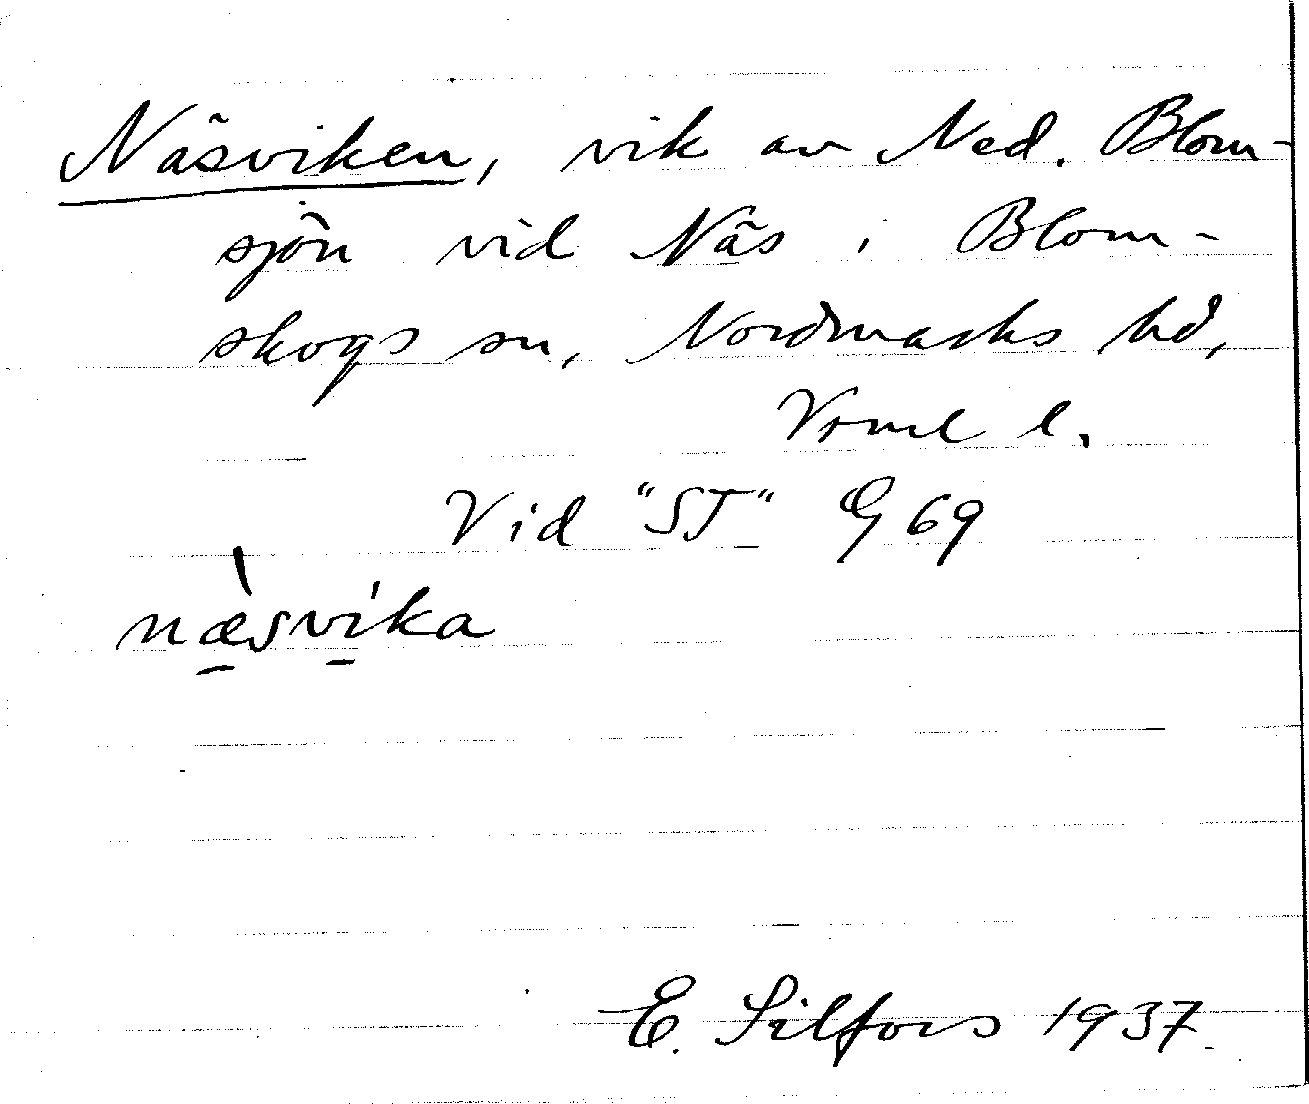 Näsviken, vik av Ned. Blom-
sjön vid Näs i Blom-
skogs sn, Nordmarks hd,
Vrml l.
Vid "ST" G 69
næ̲̀sví̲ka
E. Silfors 1937